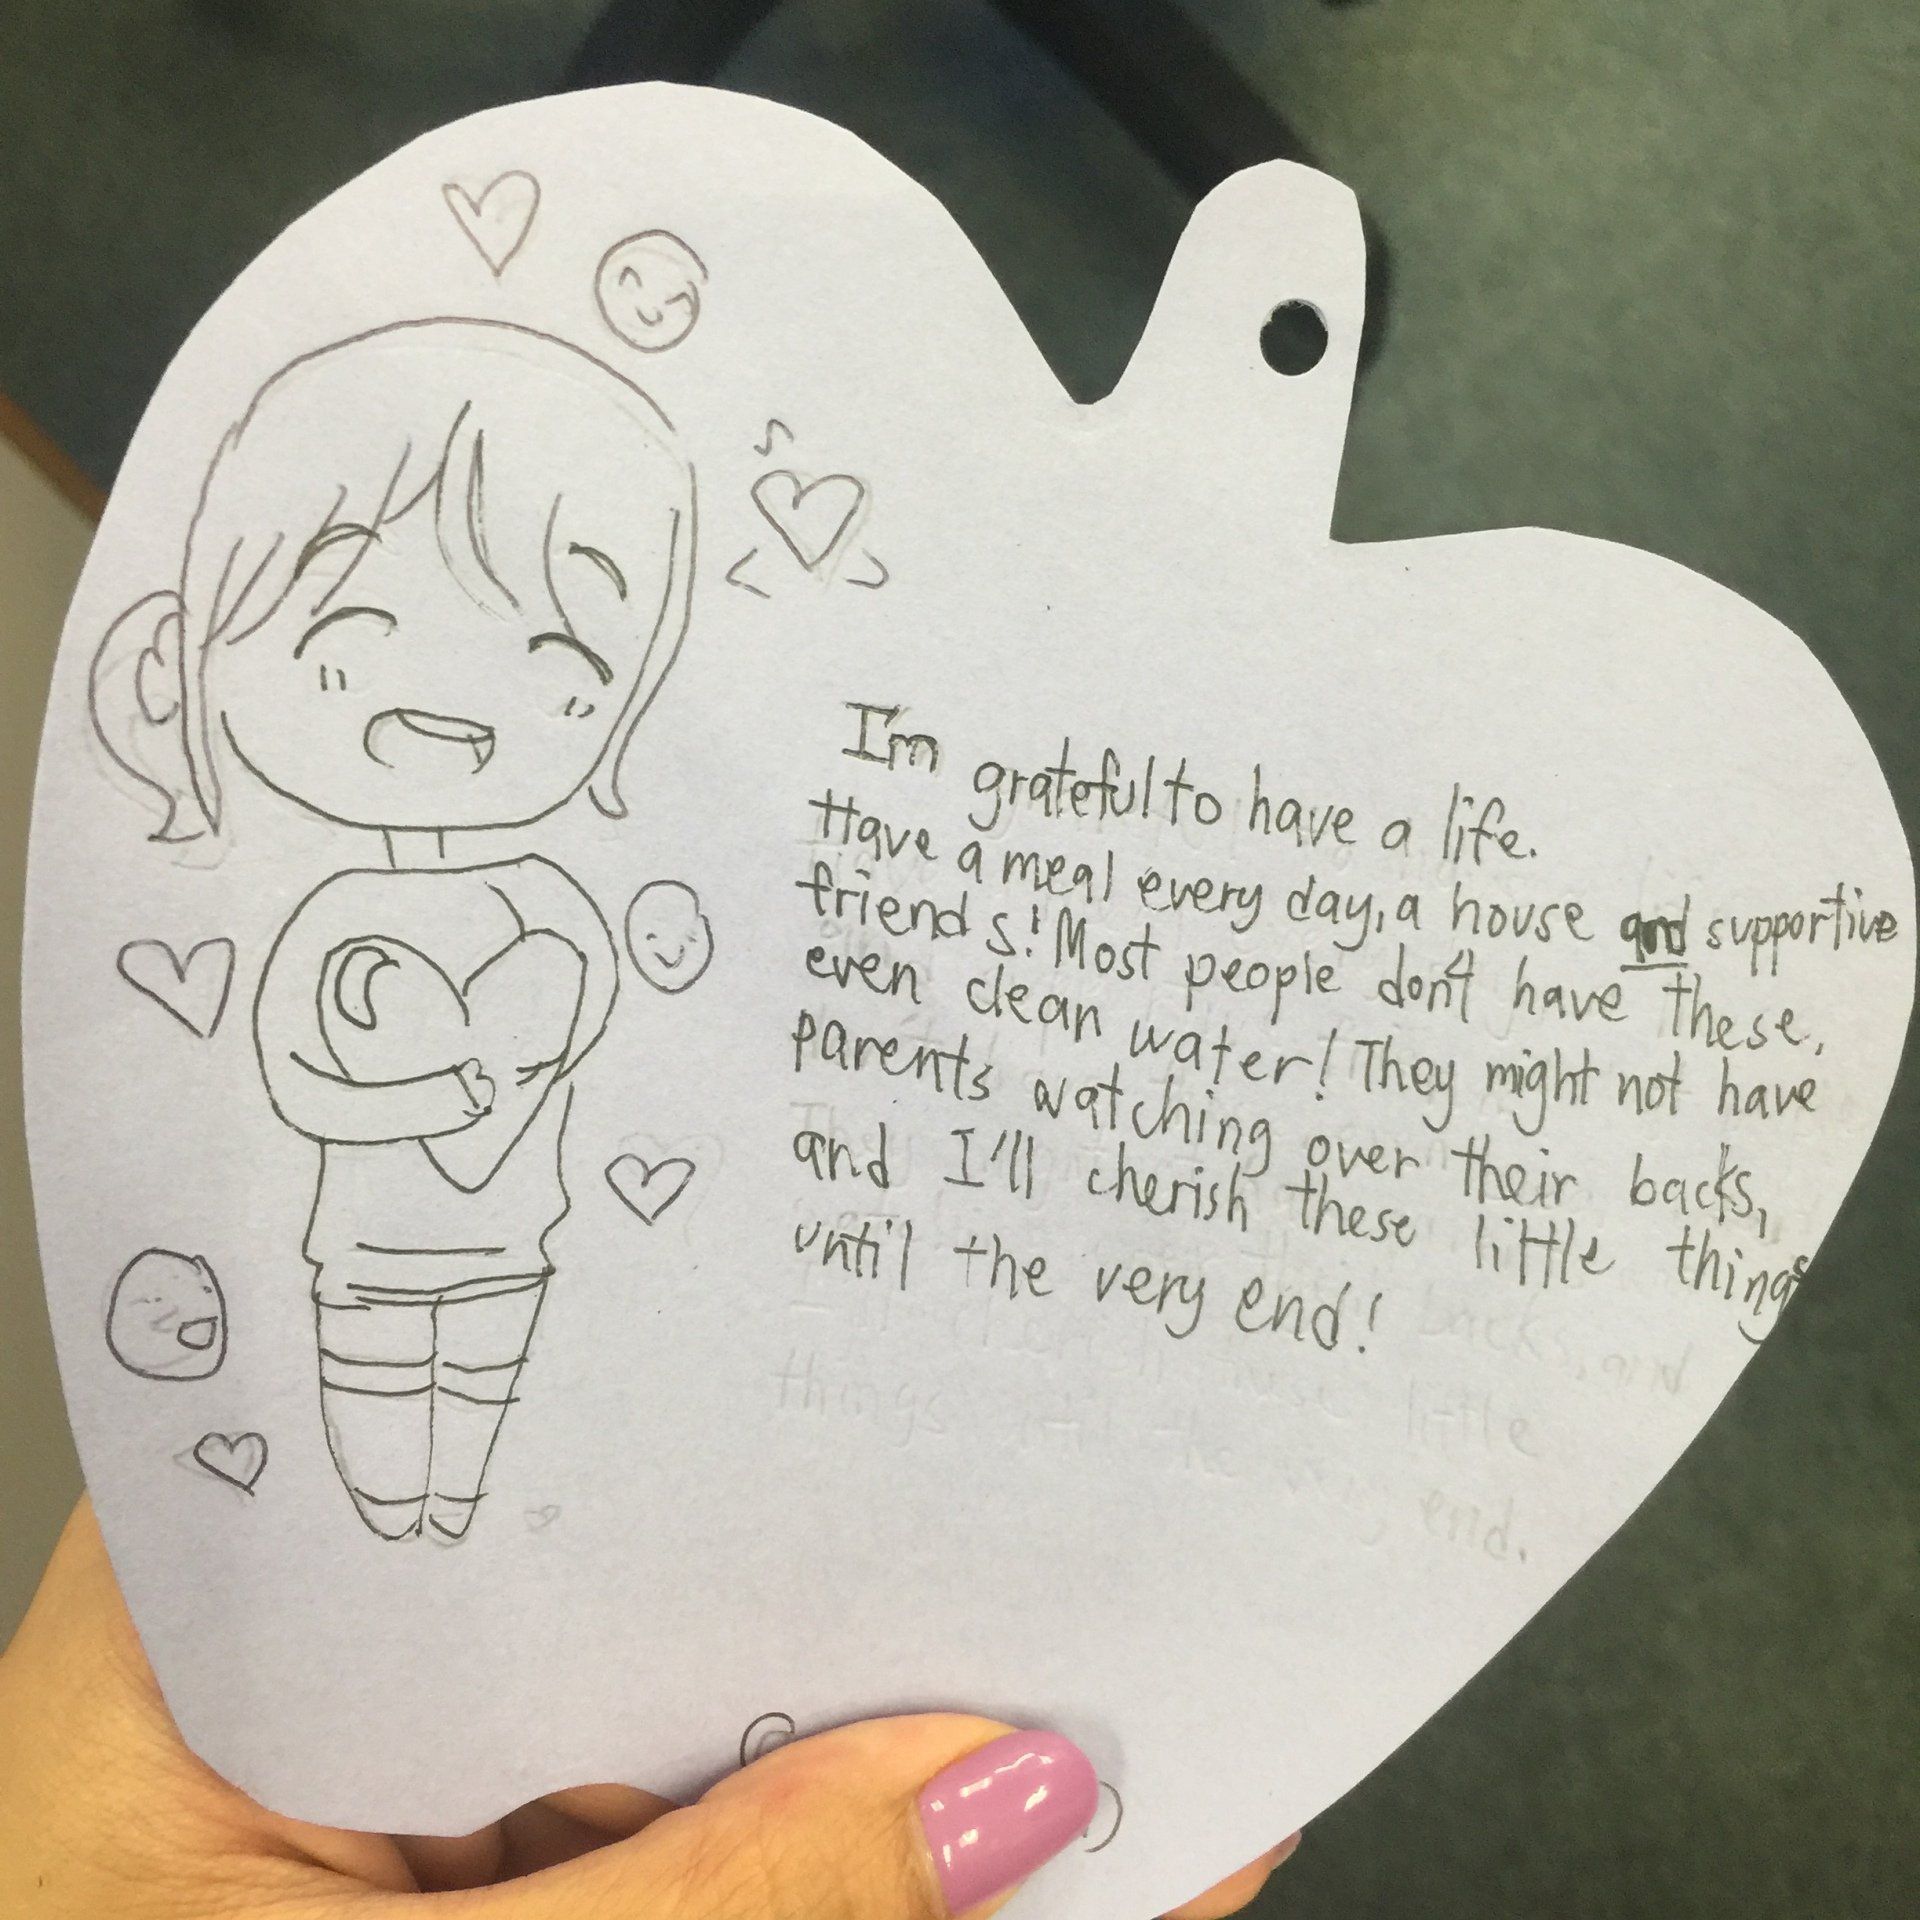 I'm grateful to have a life.
Have a meal every day, a house and supportive
friends! Most people don't have these,
even clean water! They might not have
parents watching over their backs,
and I'll cherish these little things
until the very end!
backs, and
things until the little
the very end.